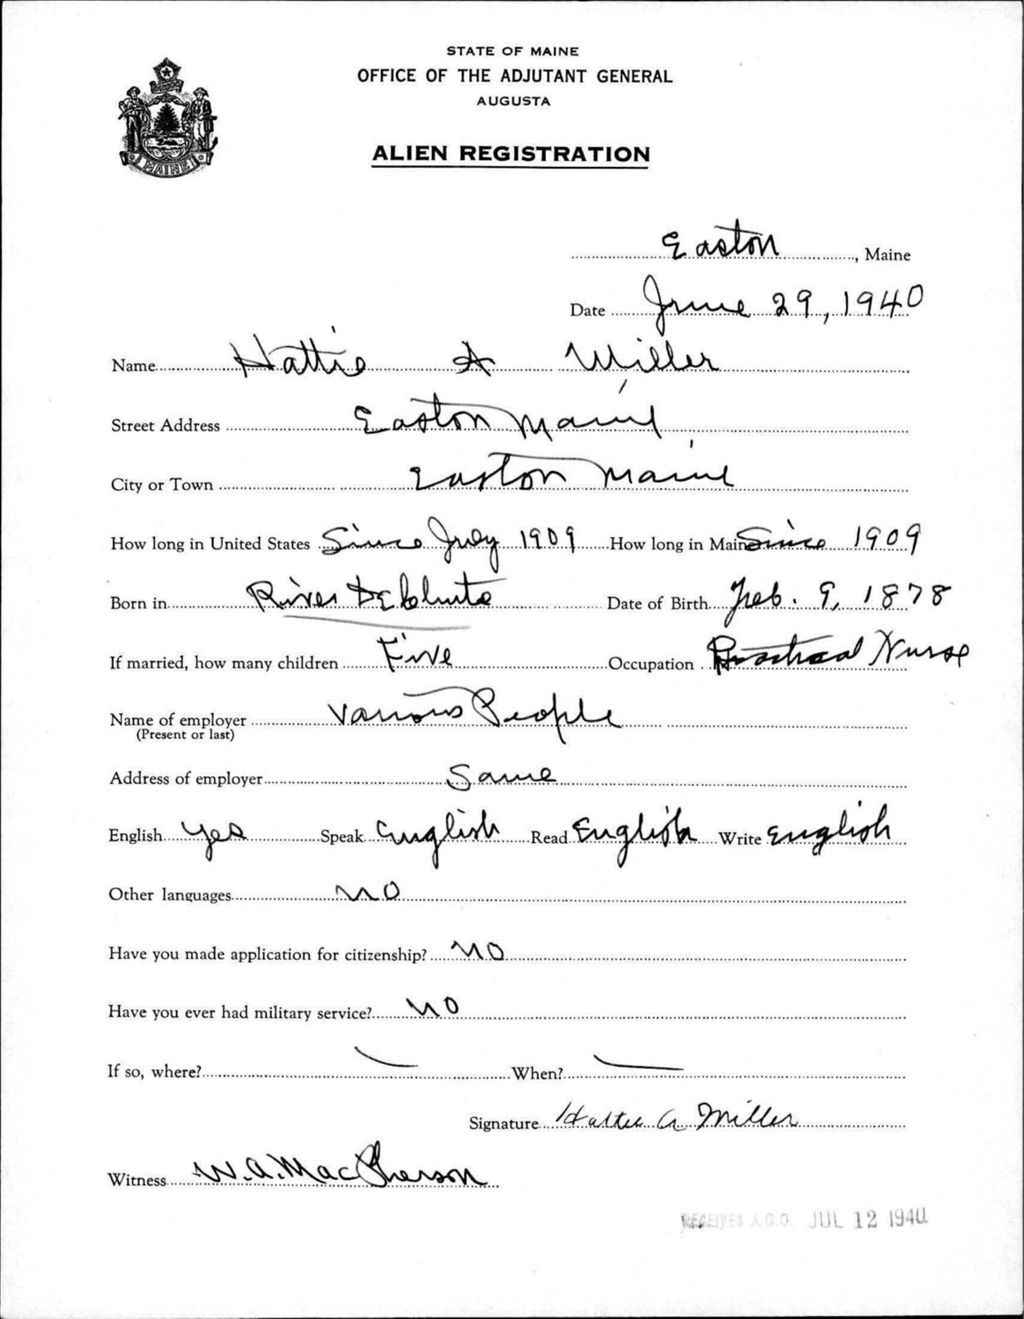 STATE OF MAINE
OFFICE OF THE ADJUTANT GENERAL
AUGUSTA
ALIEN REGISTRATION
MAINE
Easton, Maine
Date June 29, 1940
Name Hattie A Miller
Street Address Easton, Maine
City or Town Easton, Maine
How long in United States Since July 1909 How long in Maine Since 1909
Born in River De Chute Date of Birth Feb. 9, 1878
If married, how many children Five Occupation Practical Nurse
Name of employer Various People
(Present or last)
Address of employer Same
English Yes Speak English Read English Write English
Other languages No
Have you made application for citizenship? No
Have you ever had military service? No
If so, where? When?
Signature Hattie A Miller
Witness W.A. MacPherson
RECEIVED A.G.O. JUL 12 1940